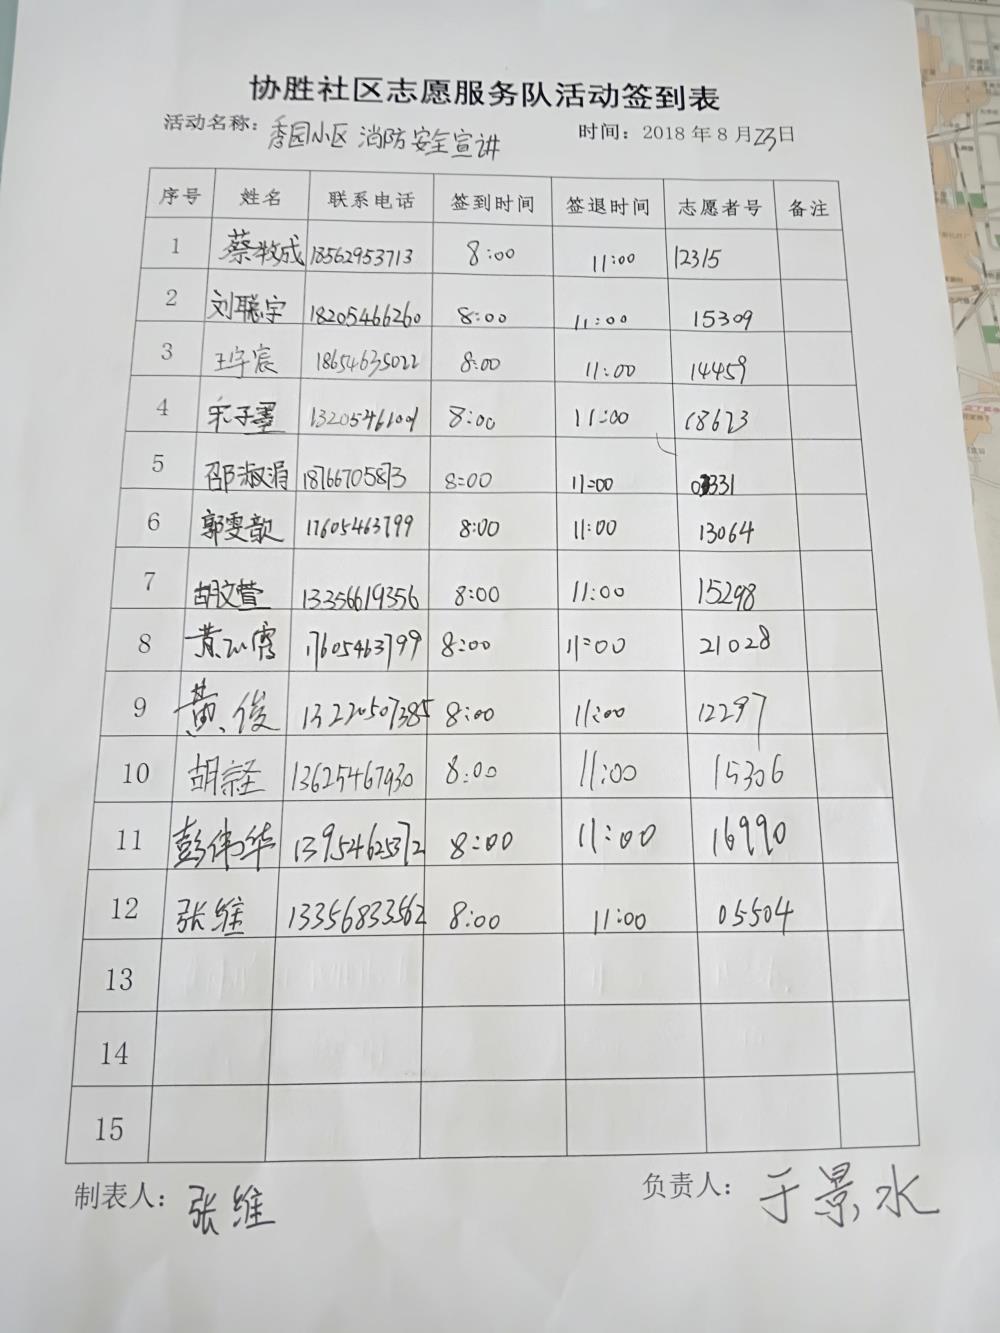 协胜社区志愿服务队活动签到表
活动名称：香园小区 消防安全宣讲 时间：2018年8月23日
序号 姓名 联系电话 签到时间 签退时间 志愿者号 备注
1 蔡牧成 18562953713 8:00 11:00 12315
2 刘聪宇 18205466260 8:00 11:00 15309
3 王宇宸 18654635022 8:00 11:00 14459
4 宋子墨 8:00 11:00 18623
5 邵淑涓 18766705873 8:00 11:00
6 郭雯歆 17605463799 8:00 11:00 13064
7 胡文萱 13356619356 8:00 11:00 15298
8 黄 17605463799 8:00 11:00 21028
9 黄俊 13220507385 8:00 11:00 12297
10 胡宗经 13625467930 8:00 11:00 15306
11 彭伟华 13954625372 8:00 11:00 16990
12 张维 13356833562 8:00 11:00 05504
13
14
15
制表人：张维 负责人：于景水